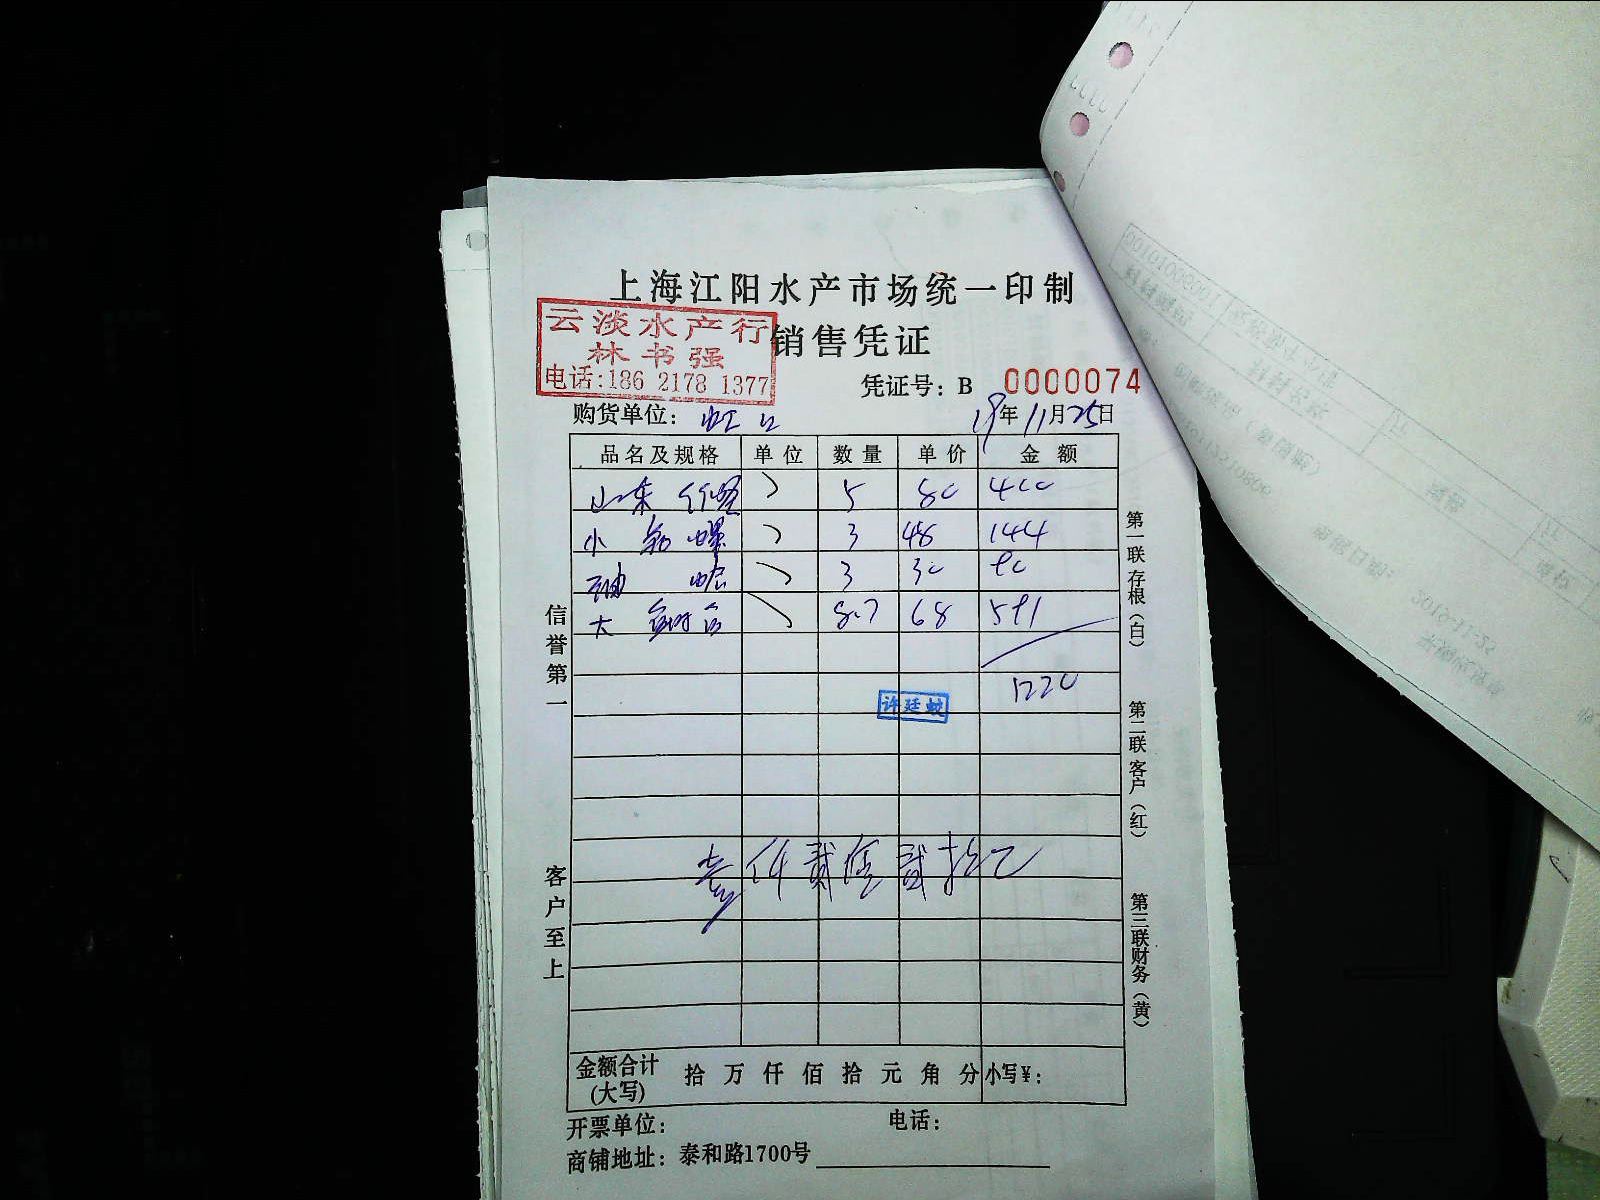 上海江阳水产市场统一印制
销售凭证
云淡水产行
林书强
电话:186 2178 1377
凭证号: B 0000074
购货单位: 虹口 19年11月25日
品名及规格 单位 数量 单价 金额
山东 5 80 400
小 螺 3 48 144
3 30 90
大 8.7 68 591
1220
许廷蛟
壹仟贰佰贰拾元
金额合计(大写) 拾 万 仟 佰 拾 元 角 分 小写¥:
开票单位: 电话:
商铺地址: 泰和路1700号
信誉第一
客户至上
第一联存根(白)
第二联客户(红)
第三联财务(黄)